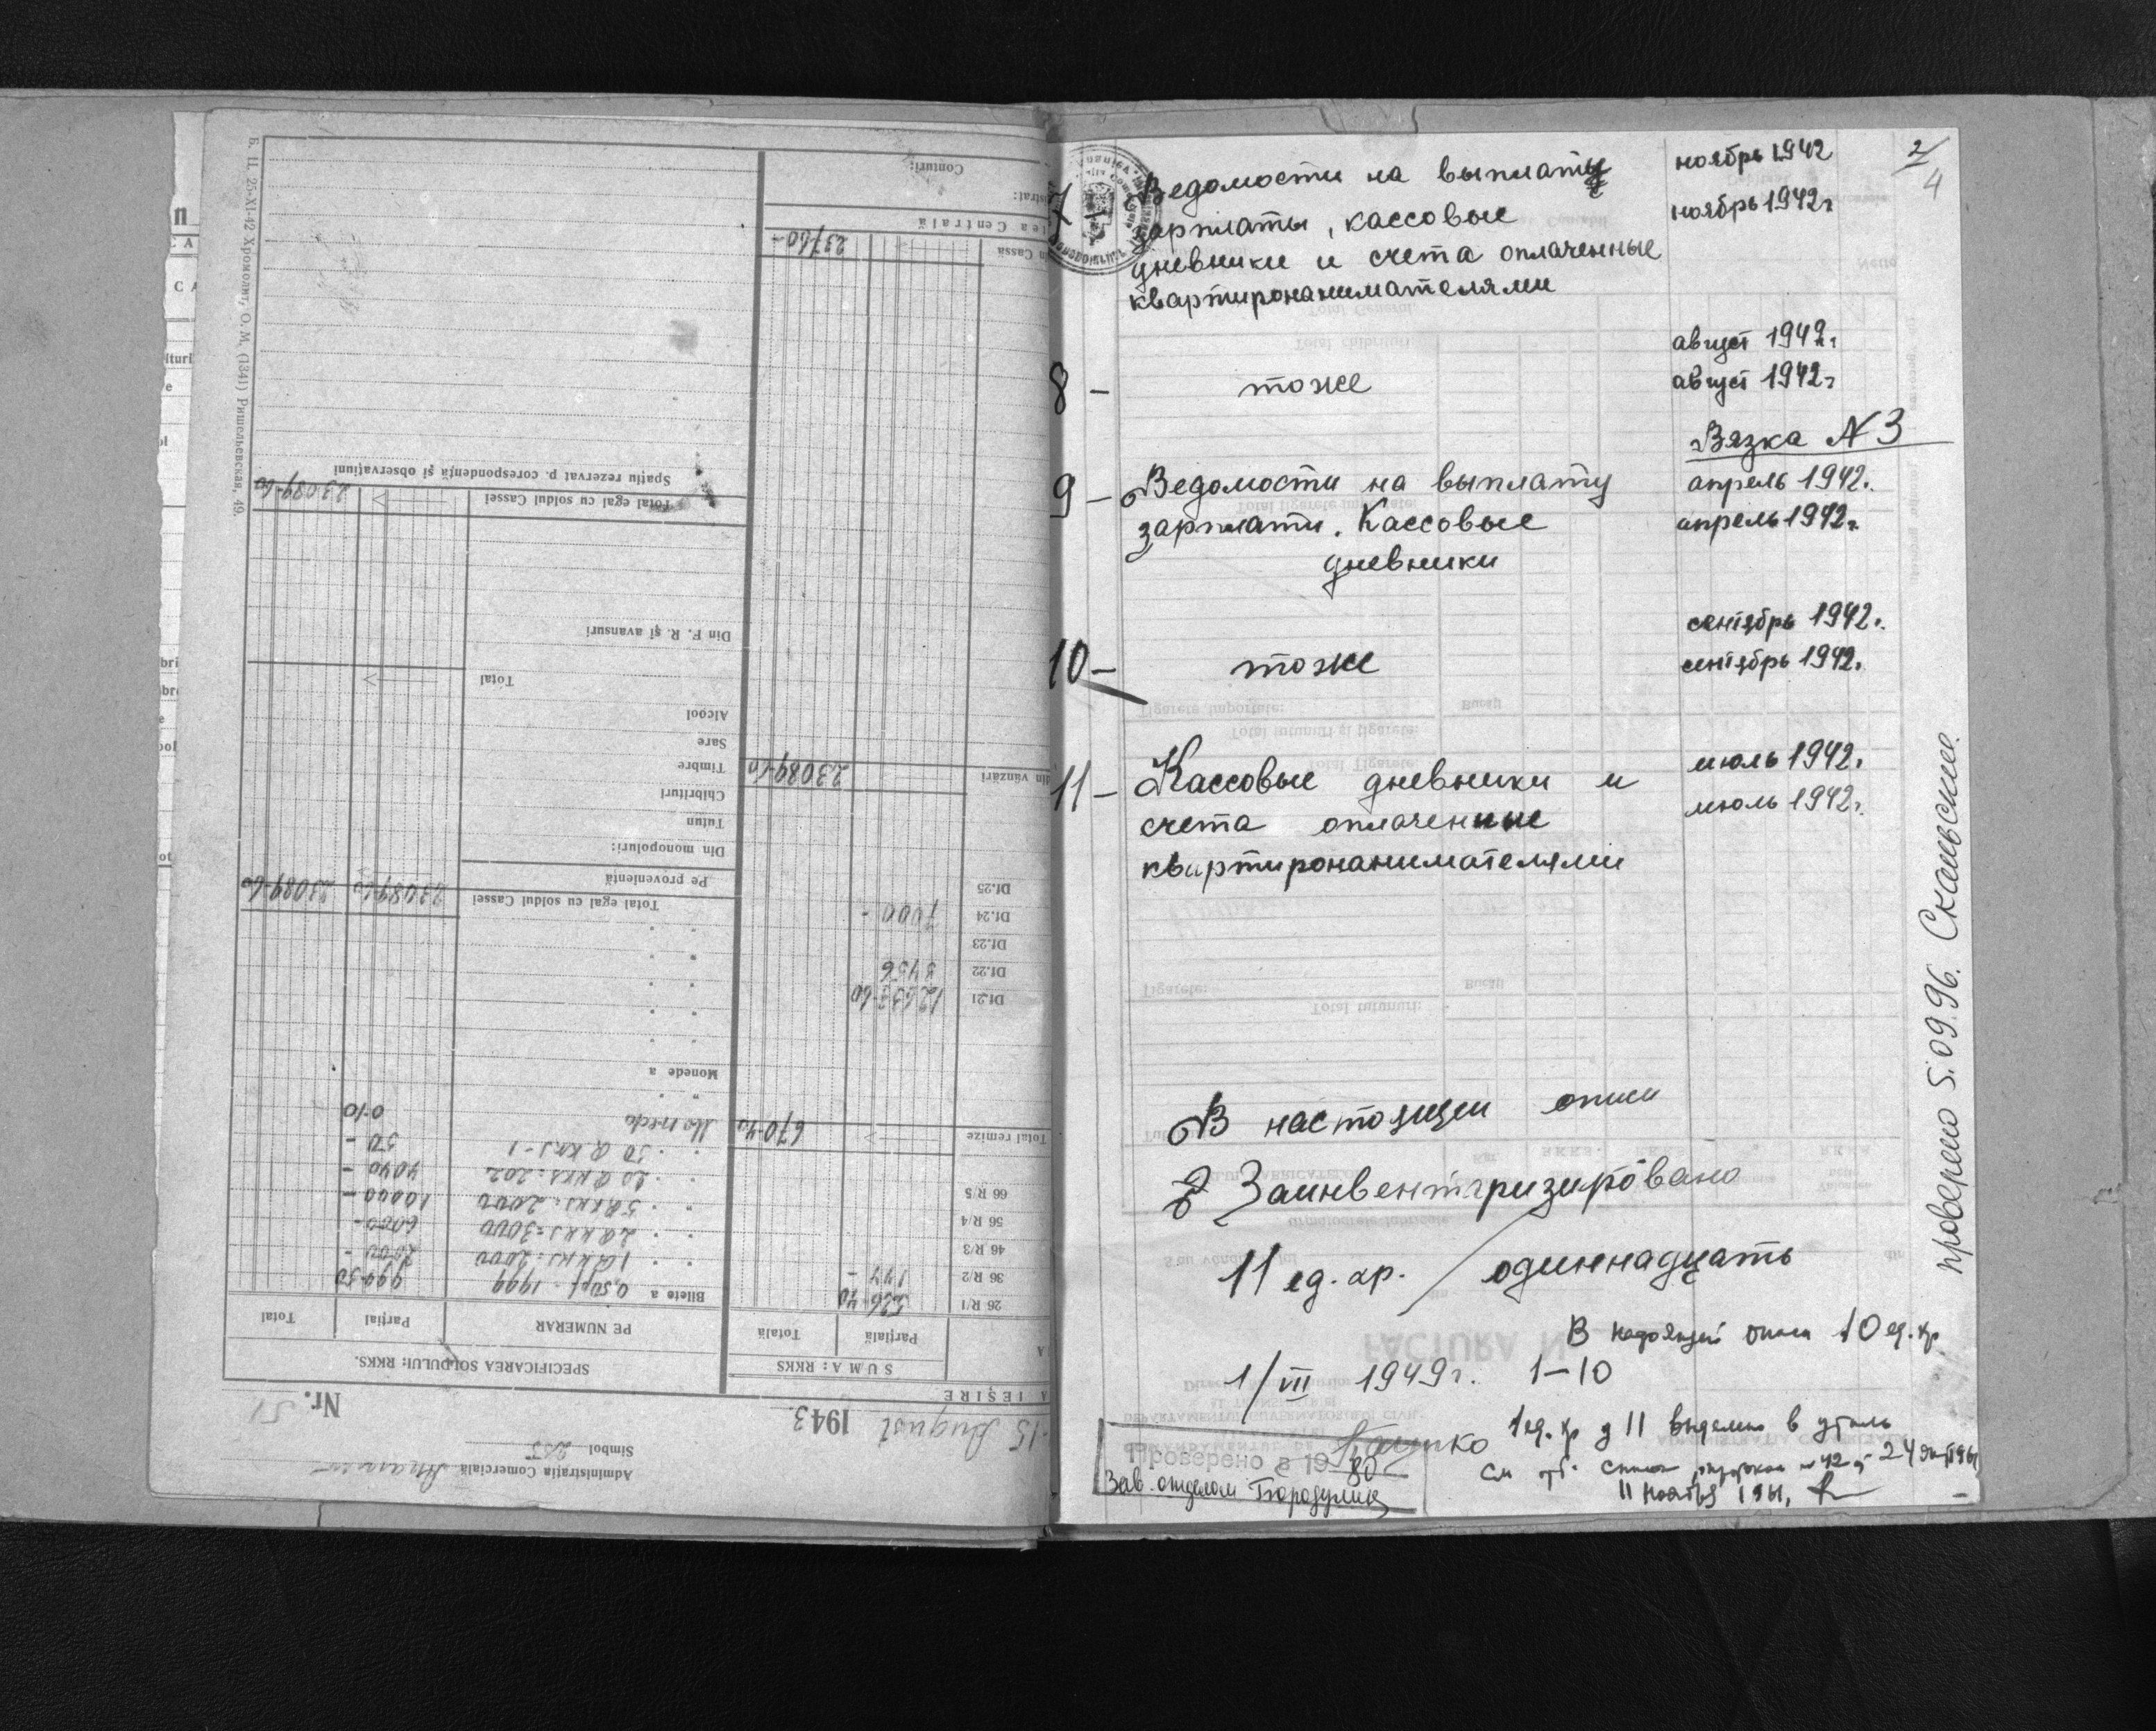 Б. Ц. 25-XI-42 Хромолит, О. М. (1341) Ришельевская, 49.
Administrația Comercială
Simbol 255
Nr. 51
15 August 1943.
IEȘIRE
SPECIFICAREA SOLDULUI: RKKS.
SUMA: RKKS
PE NUMERAR Parțial Total
Parțială Totală
Bilete a 0,50 pf - 1999 999-50
" " 1 RKKS = 2000 2000 -
" " 2 RKKS = 3000 6000 -
" " 5 RKKS = 2000 10000 -
" " 20 RKKS = 202 4040 -
" " 50 RKKS - 1 50 -
Monede 0-10
Monede a
Total egal cu soldul Cassei 23089-60 23089-60
Pe proveniență
Din monopoluri:
Tutun
Chibrituri
Timbre
Sare
Alcool
Total
Din F. R. și avansuri
Total egal cu soldul Cassei 23089-60
Spațiu rezervat p. corespondență și observațiuni
26 R/1 526-40
36 R/2 144 -
46 R/3
56 R/4
66 R/5
Total remize 670-40
Df.21 12633-60
Df.22 3456
Df.23
Df.24 7000 -
Df.25
din vânzări 23089-60
in Cassa 23760 -
tea Centrală
Conturi:
2/4
7 Ведомости на выплату ноябрь 1942
зарплаты, кассовые ноябрь 1942г
дневники и счета оплаченные
квартиронанимателями
август 1942г.
8 - тоже август 1942г
Вязка N 3
9 - Ведомости на выплату апрель 1942.
зарплаты. Кассовые апрель 1942г.
дневники
сентябрь 1942г.
10 - тоже сентябрь 1942.
11 - Кассовые дневники и июль 1942.
счета оплаченные июль 1942г.
квартиронанимателями
В настоящей описи
Заинвентаризировано
11 ед. хр. / одиннадцать
В настоящей описи 10 ед. хр.
1/VII 1949г. 1-10
1 ед. хр д 11 выделено в утиль
11 ноября 1961,
Проверено в 1980
Зав. отделом Бородулина
проверено 5.09.96. Скальские